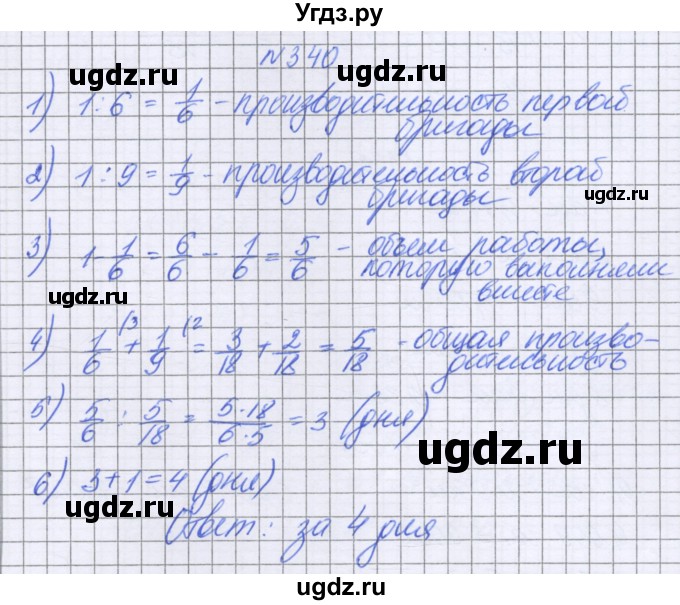 Угдз.ру
N340
ugdz.ru
1) 1:6 = 1/6 - производительность первой
бригады
2) 1:9 = 1/9 - производительность второй
бригады
ugdz.ru
ugdz.ru
3) 1 - 1/6 = 6/6 - 1/6 = 5/6 - объем работы,
которую выполняли
вместе
ugdz.ru
4) 1/6 (3 + 1/9 (2 = 3/18 + 2/18 = 5/18 - общая произво-
дительность
ugdz.ru
5) 5/6 : 5/18 = 5·18/6·5 = 3 (дня)
ugdz.ru
6) 3+1=4 (дня)
ugdz.ru
Ответ: за 4 дня
ugdz.ru
ugdz.ru